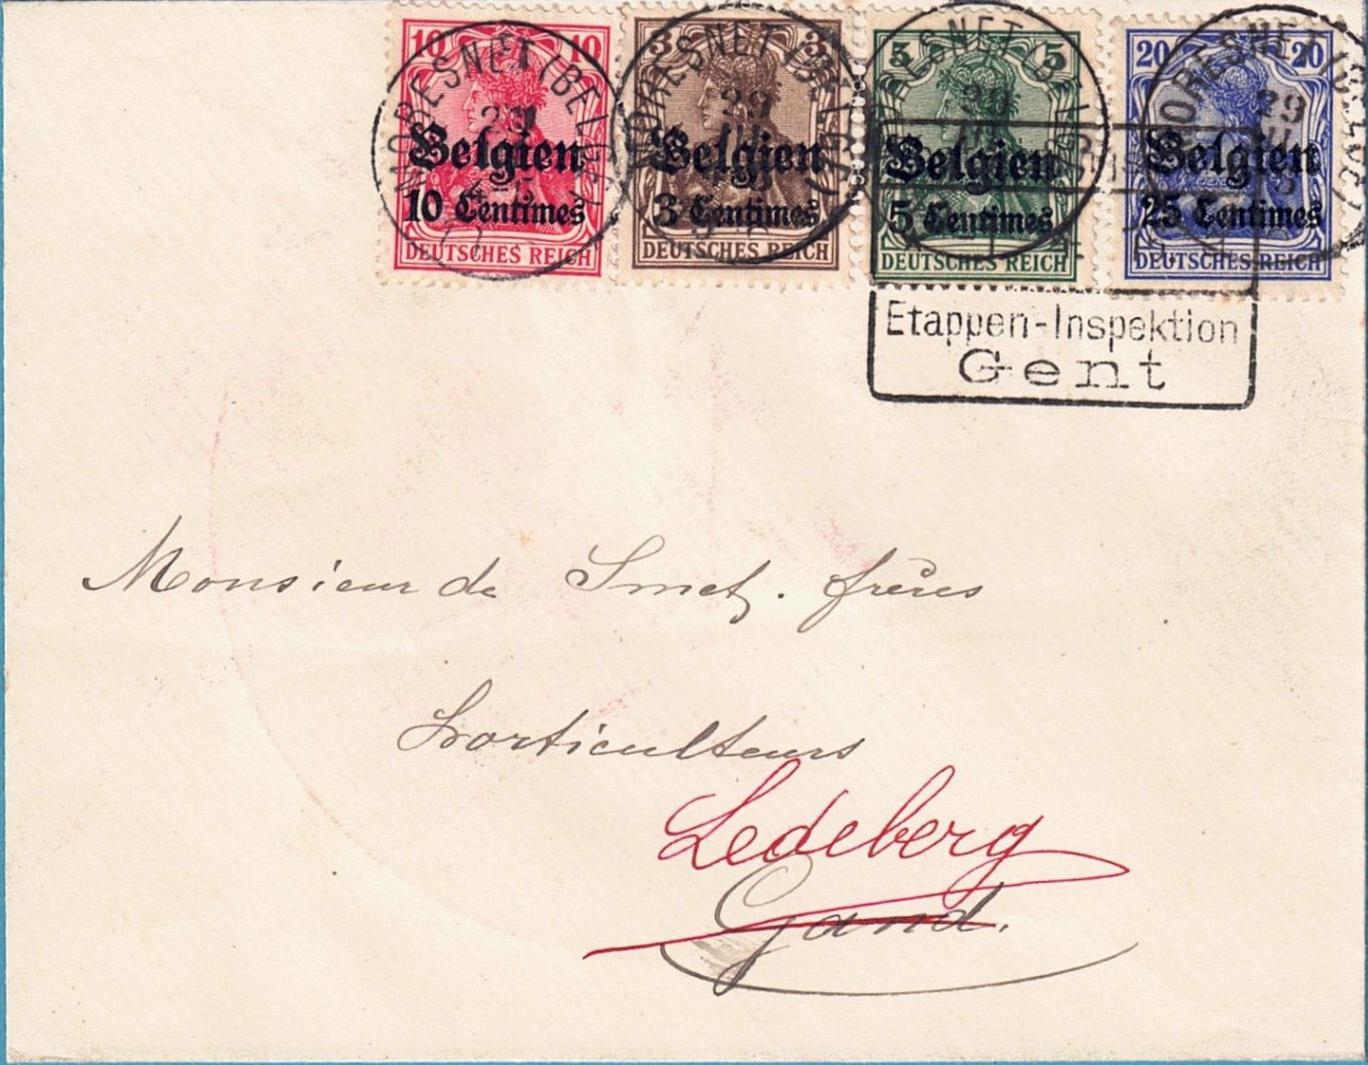 10 10
Belgien
10 Centimes
DEUTSCHES REICH
3 3
Belgien
3 Centimes
DEUTSCHES REICH
5 5
Belgien
5 Centimes
DEUTSCHES REICH
20 20
Belgien
25 Centimes
DEUTSCHES REICH
MORESNET (BELG.)
29
MORESNET (BELG.)
29
MORESNET (BELG.)
MORESNET (BELG.)
29
Etappen-Inspektion
Gent
Monsieur de Smet. frères
Horticulteurs
Ledeberg
Gand.